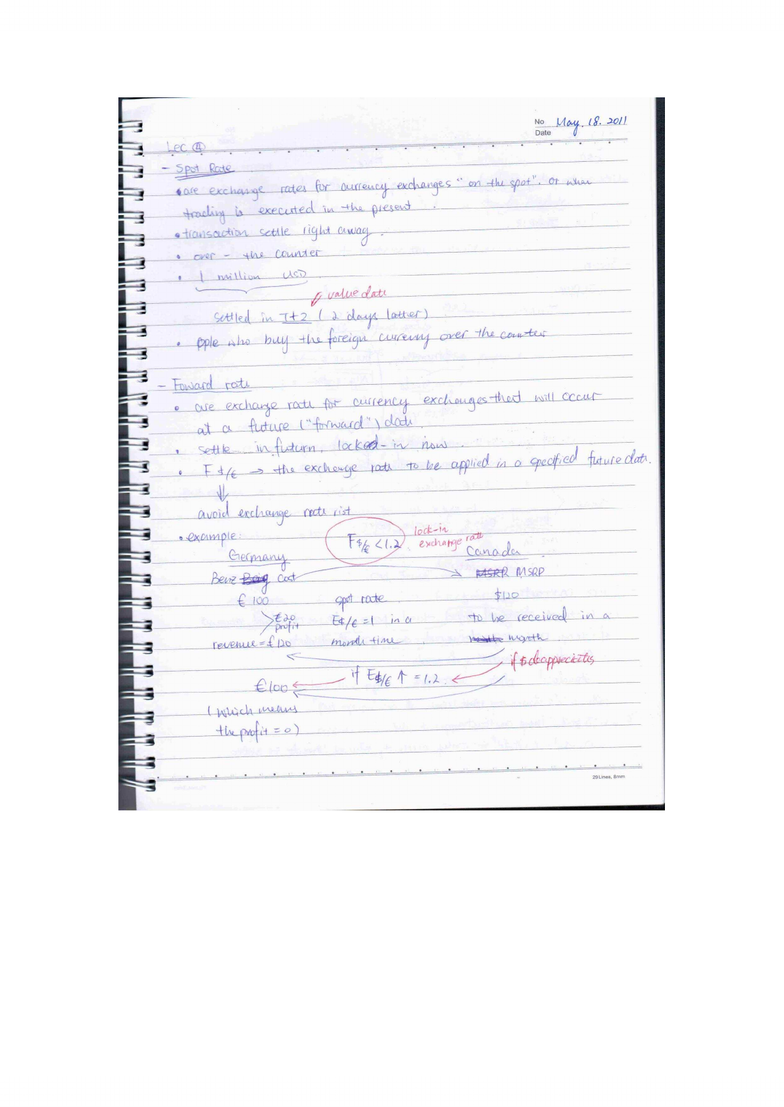 No May. 18. 2011
Date
Lec ④
- Spot Rate
• are exchange rates for currency exchanges "on the spot". or when
trading is executed in the present.
• transaction settle right away.
• over - the counter
• 1 million USD
value date
settled in T+2 (2 days latter)
• pple who buy the foreign currency over the counter
- Foward rate
• are exchange rate for currency exchanges that will occur
at a future ("forward") date.
• settle in futurn, locked-in now.
• F $/€ → the exchange rate to be applied in a specified future date.
⇓
avoid exchange rate rist
• example:
F$/€ < 1.2 lock-in
exchange rate
Germany Canada
Benz cost MSRP MSRP
€ 100 spot rate $120
€20
profit E$/€ = 1 in a to be received in a
revenue = €120 month time month
if $ depprecictes
€100 if E$/€ ↑ = 1.2
(which means
the profit = 0)
29 Lines, 8mm